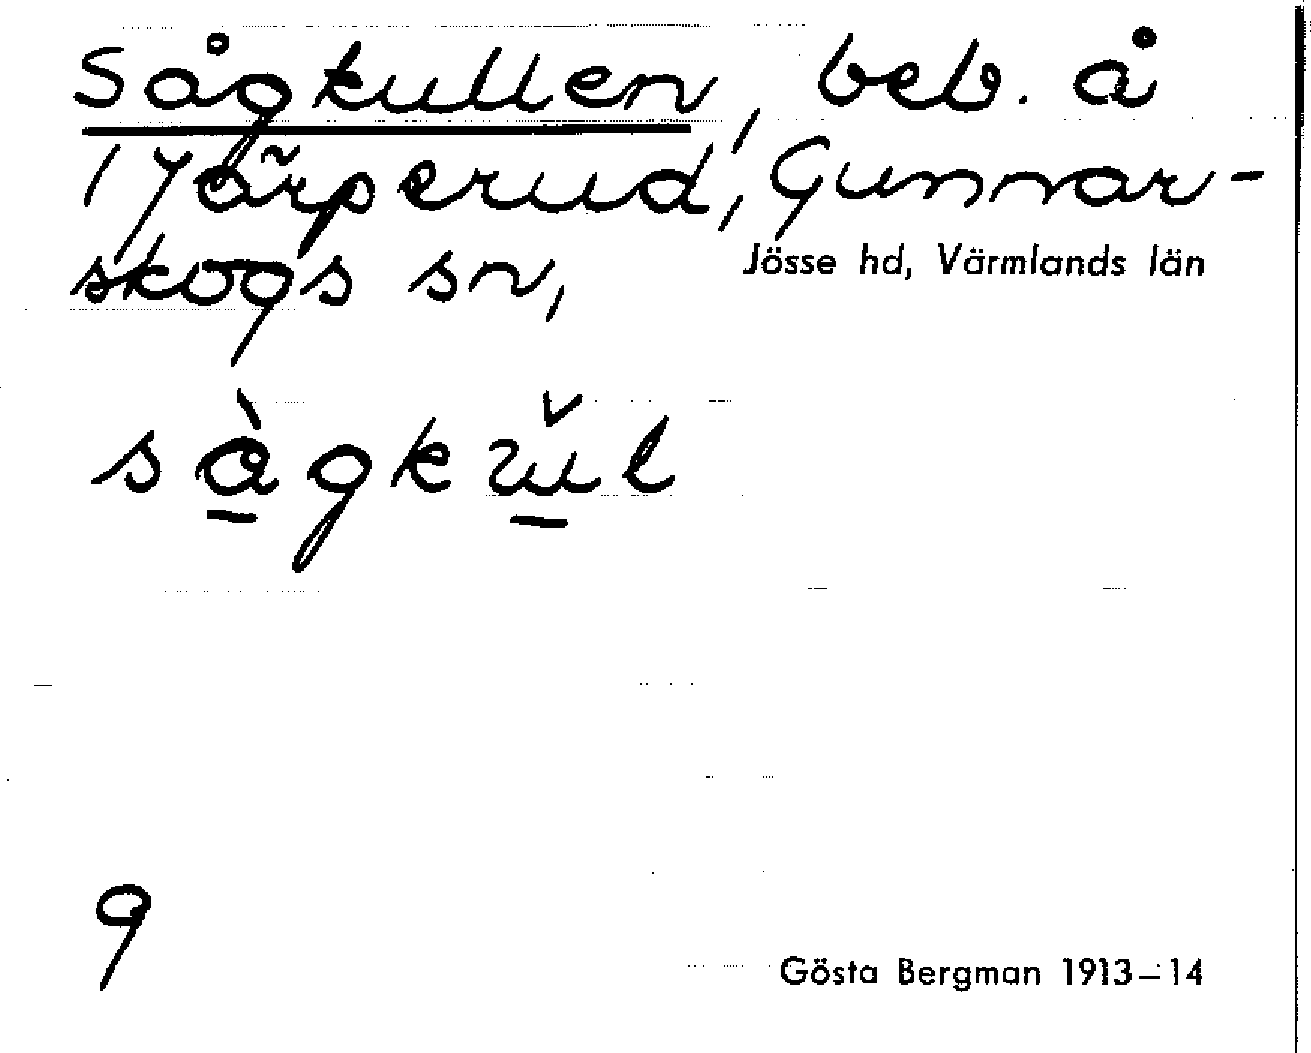 Sågkullen, beb. å
1/7 Järperud, Gunnar-
skogs sn,
Jösse hd, Värmlands län
sàgkŭl
9
Gösta Bergman 1913–14